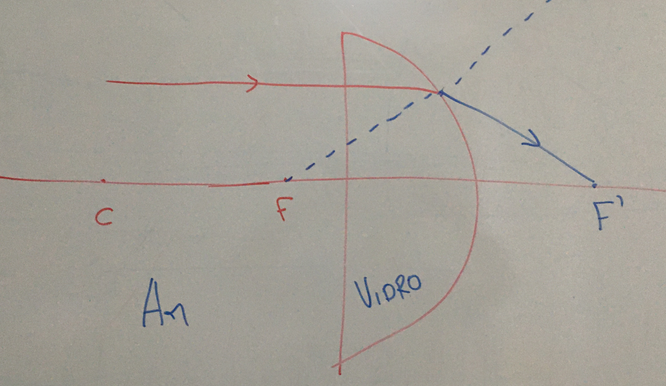 C
F
F'
Ar
VIDRO